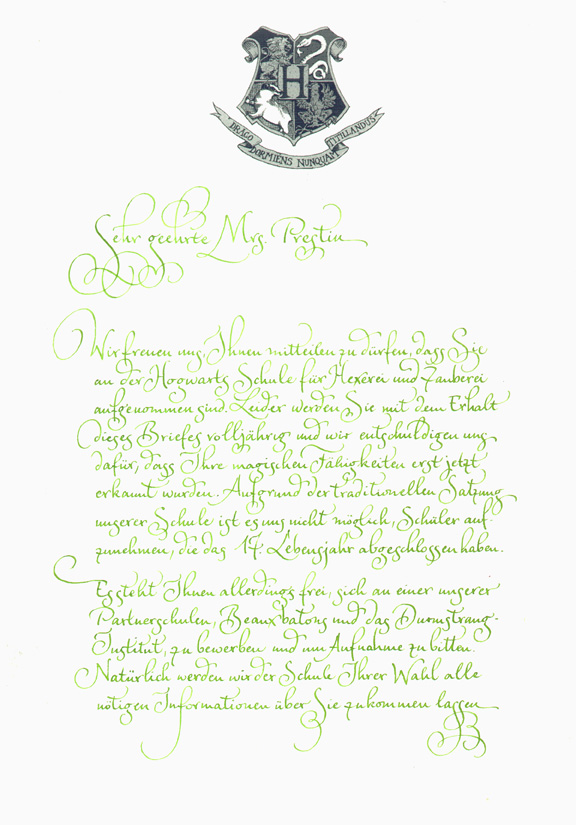 DRACO DORMIENS NUNQUAM TITILLANDUS
H
Sehr geehrte Mrs. Prestin
Wir freuen uns, Ihnen mitteilen zu dürfen, dass Sie
an der Hogwarts Schule für Hexerei und Zauberei
aufgenommen sind. Leider werden Sie mit dem Erhalt
dieses Briefes volljährig und wir entschuldigen uns
dafür, dass Ihre magischen Fähigkeiten erst jetzt
erkannt wurden. Aufgrund der traditionellen Satzung
unserer Schule ist es uns nicht möglich, Schüler auf-
zunehmen, die das 17. Lebensjahr abgeschlossen haben.
Es steht Ihnen allerdings frei, sich an einer unserer
Partnerschulen, Beauxbatons und das Durmstrang-
Institut, zu bewerben und um Aufnahme zu bitten.
Natürlich werden wir der Schule Ihrer Wahl alle
nötigen Informationen über Sie zukommen lassen